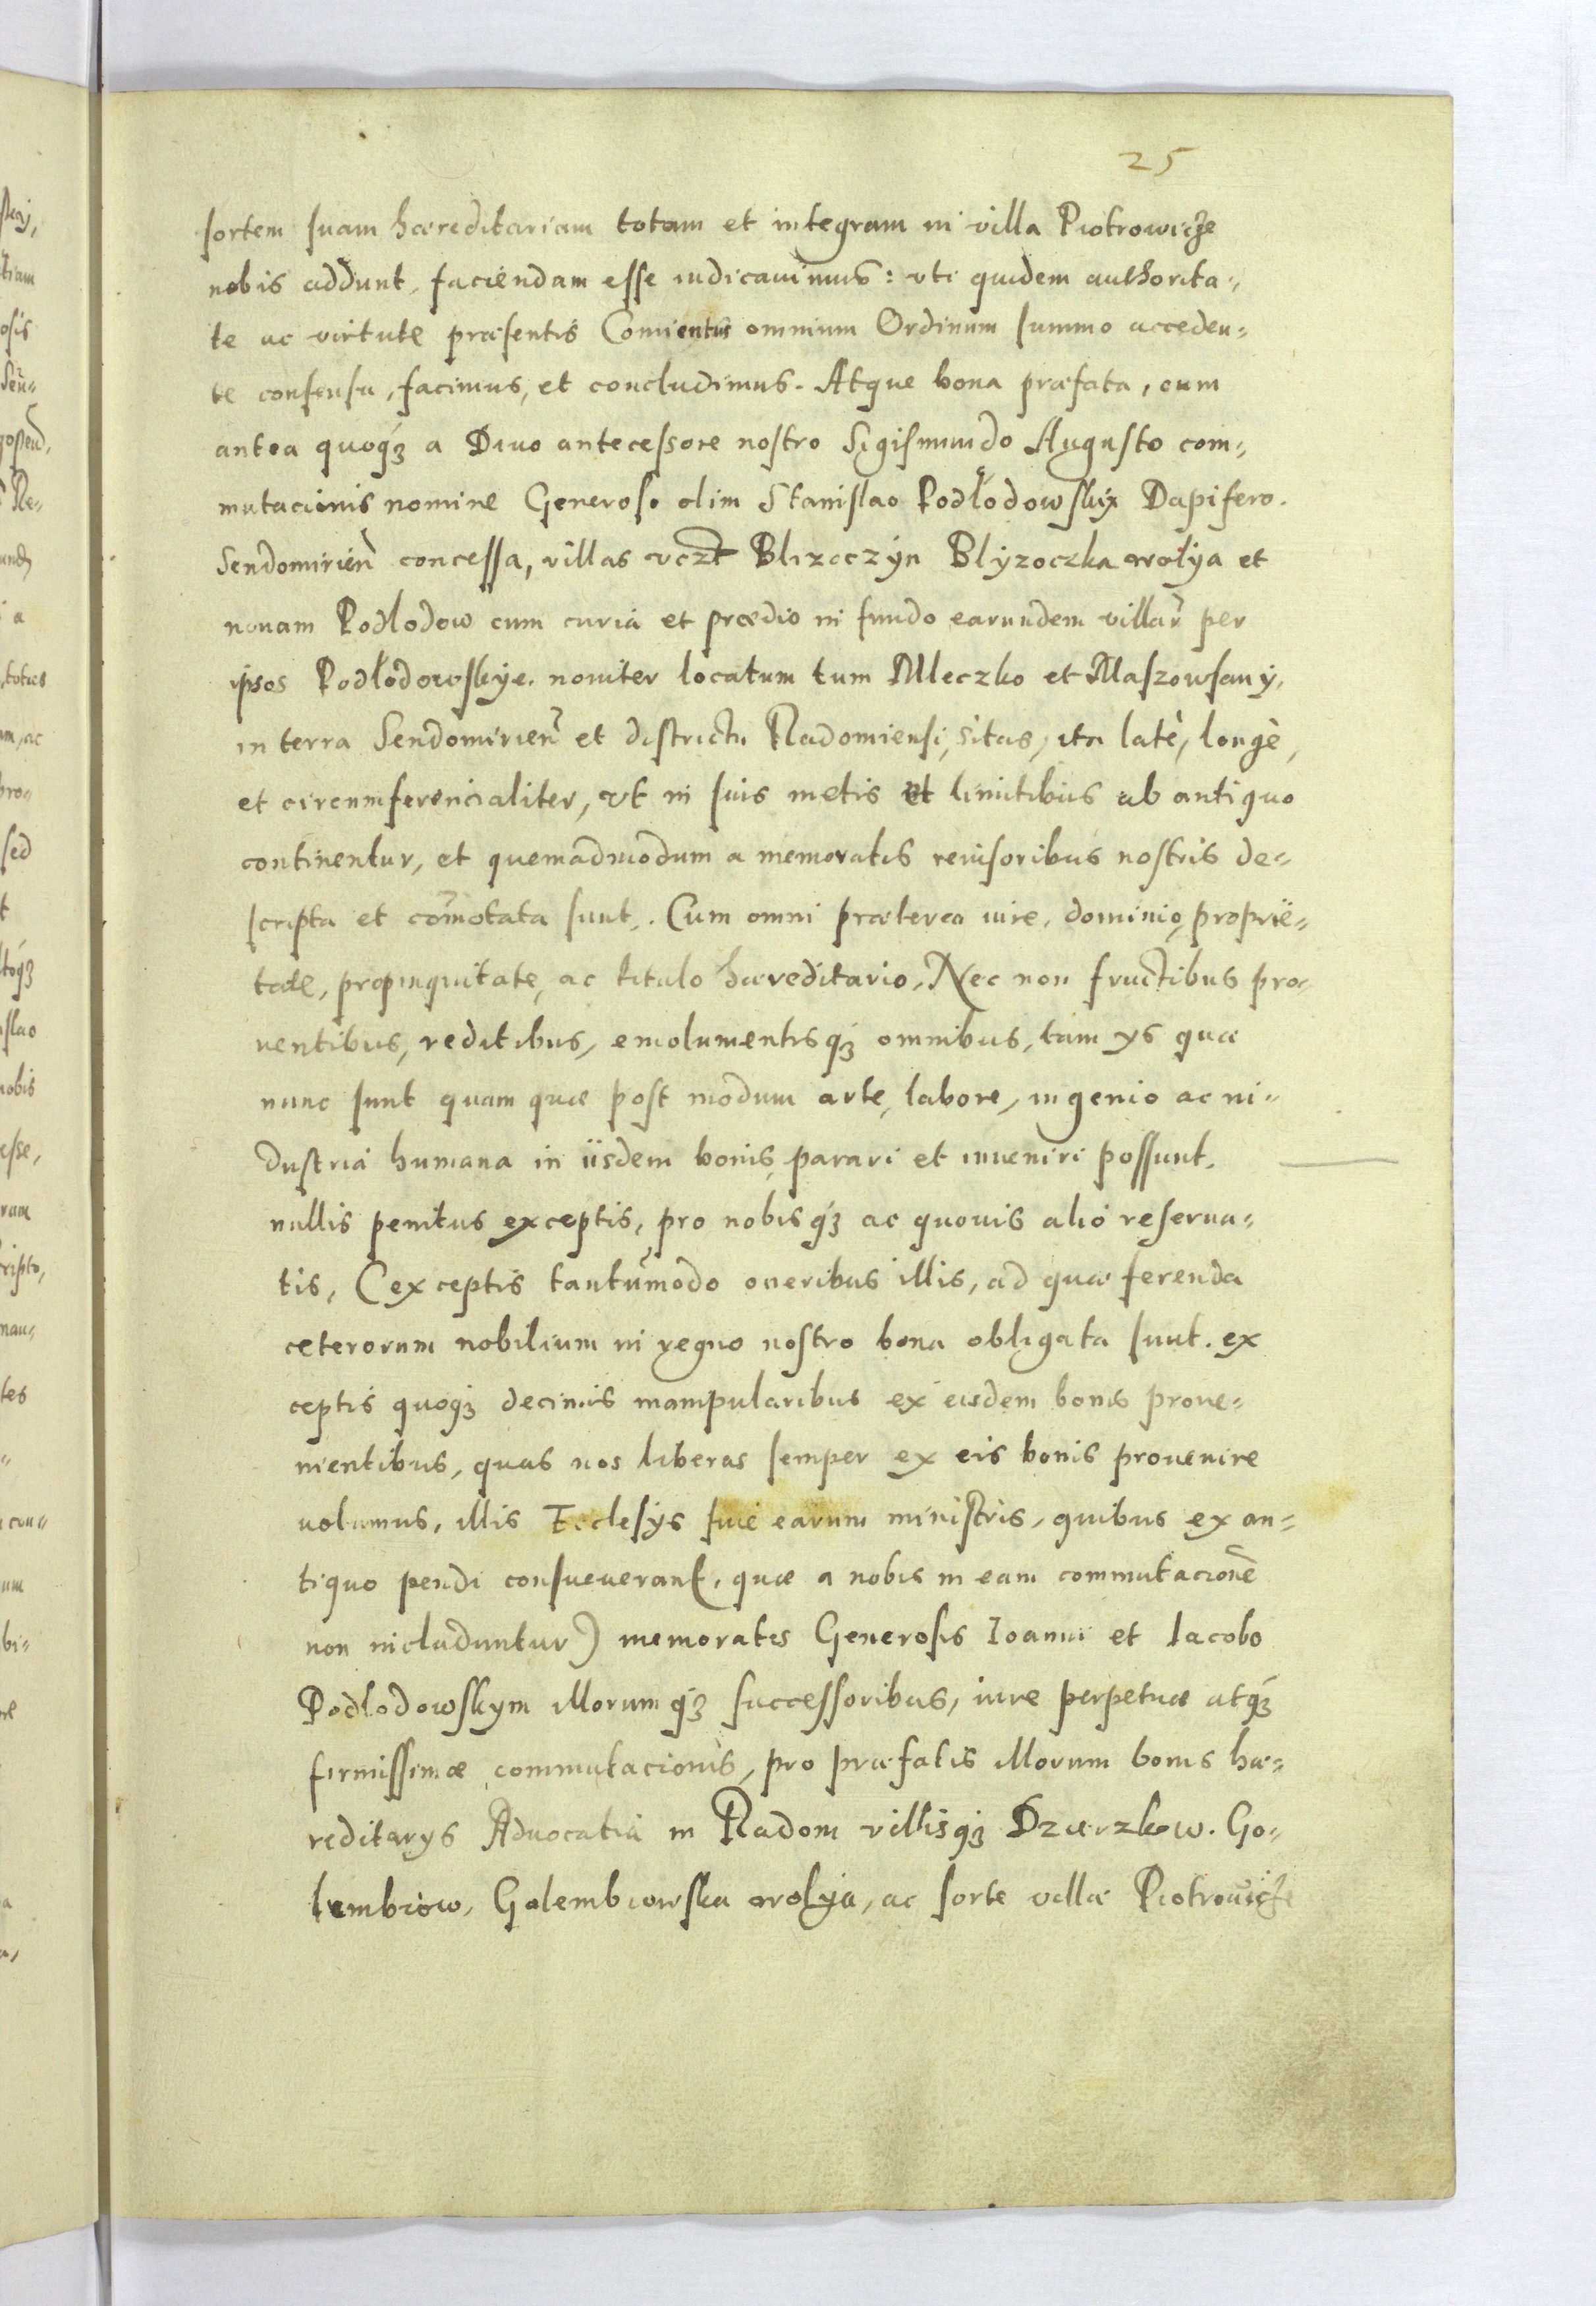 25
sortem suam hæreditariam totam et integram in villa Piotrowicze
nobis addunt, faciendam esse iudicauimus: vti quidem authorita-
te ac virtute præsentis Conuentus omnium Ordinum summo acceden-
te consensu, facimus, et concludimus. Atque bona præfata, cum
antea quoqȝ a Diuo antecessore nostro Sigismundo Augusto com-
mutacionis nomine Generoso olim Stanislao Podłodowskij Dapifero
Sendomirien̄ concessa, villas vczt Blizoczyn Blyzoczka wolya et
nouam Podlodow cum curia et prædio in fundo earundem villar̄ per
ipsos Podłodowskye nouiter locatum tum Mleczko et Maszowsany,
in terra Sendomirien̄ et districtu Radomiensi, sitas, ita latè, longè,
et circumferencialiter, vt in suis metis et limitibus ab antiquo
continentur, et quemadmodum a memoratis reuisoribus nostris de-
scripta et com̄otata sunt. Cum omni præterea iure, dominio, proprie-
tate, propinquitate, ac titulo hæreditario, Nec non fructibus pro-
uentibus, reditibus, emolumentisqȝ omnibus, tam ys quæ
nunc sunt quam quæ post modum arte, labore, ingenio ac in-
dustria humana in iisdem bonis parari et inueniri possunt,
nullis penitus exceptis, pro nobisqȝ ac quouis alio reserua-
tis, (exceptis tantum̄odo oneribus illis, ad quæ ferenda
ceterorum nobilium in regno nostro bona obligata sunt. ex
ceptis quoqȝ decimis manipularibus ex eisdem bonis proue-
nientibus, quas nos liberas semper ex eis bonis prouenire
volumus, illis Ecclesys siue earum ministris, quibus ex an-
tiquo pendi consueuerant, quæ a nobis in eam commutacionē
non includuntur) memoratis Generosis Ioanni et Iacobo
Podlodowskym illorumqȝ successoribus, iure perpetuæ atqȝ
firmissimæ commutacionis, pro præfatis illorum bonis hæ-
reditarys Aduocatia in Radom villisqȝ Dzierzkow. Go-
lembiow, Golembiowska wolya, ac sorte villæ Piotrowicze